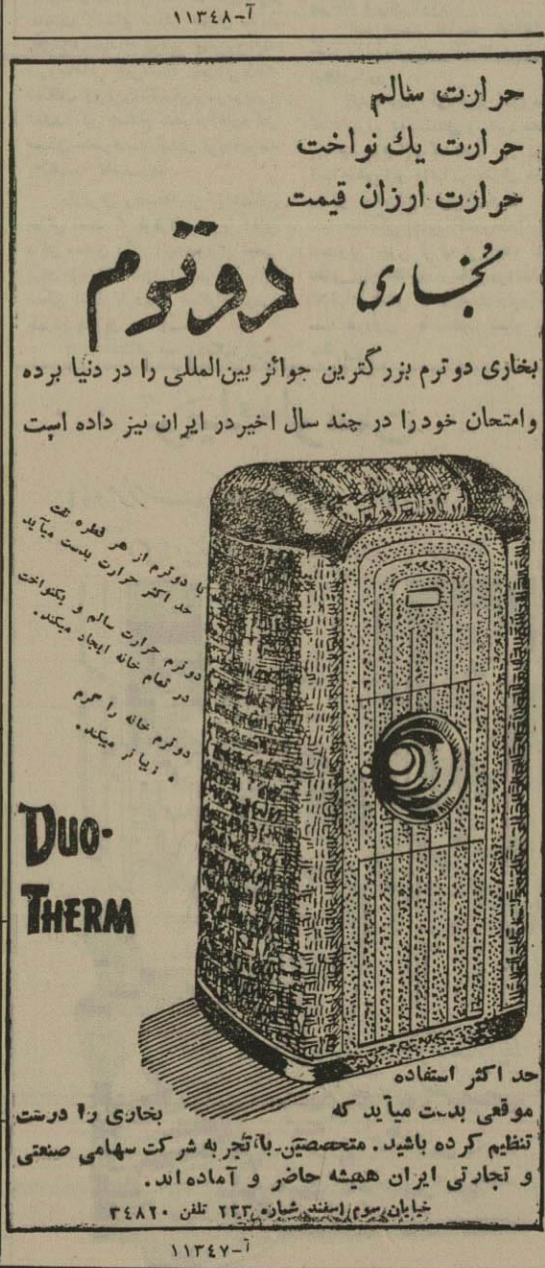 آ-۱۱۳۴۸
حرارت سالم
حرارت یك نواخت
حرارت ارزان قیمت
بُخاری دوترم
بخاری دوترم بزرگترین جوائز بین‌المللی را در دنیا برده
وامتحان خود را در چند سال اخیر در ایران نیز داده است
با دوترم از هر قطره نفت
حد اکثر حرارت بدست میآید
دوترم حرارت سالم و یکنواخت
در تمام خانه ایجاد میکند.
دوترم خانه را گرم
و زیباتر میکند.
DUO-
THERM
حد اکثر استفاده
موقعی بدست میآید که بخاری را درست
تنظیم کرده باشید. متخصصین با تجربه شرکت سهامی صنعتی
و تجارتی ایران همیشه حاضر و آماده‌اند.
خیابان سوم اسفند شماره ۲۳۳ تلفن ۳۴۸۲۰
آ-۱۱۳۴۷